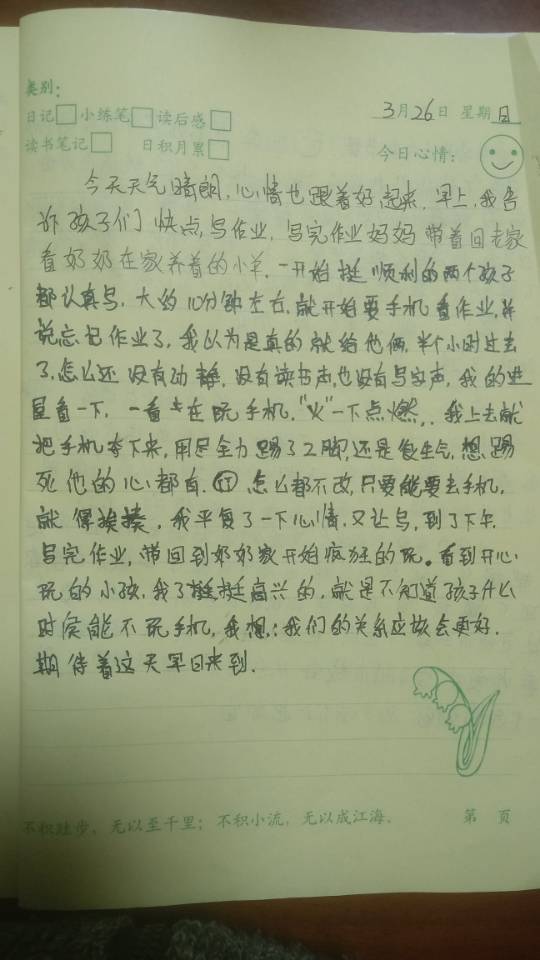 类别:
日记 小练笔 读后感 3月26日 星期日
读书笔记 日积月累 今日心情:
今天天气晴朗,心情也跟着好起来,早上,我告
诉孩子们快点,写作业,写完作业妈妈带着回老家
看奶奶在家养着的小羊,一开始挺顺利的两个孩子
都认真写,大约10分钟左右,就开始要手机看作业,并
说忘记作业了,我以为是真的就给他俩,半个小时过去
了,怎么还没有动静,没有读书声,也没有写字声,我的进
屋看一下,一看在玩手机,"火"一下点燃,我上去就
把手机夺下来,用足全力踢了2脚,还是很生气,想踢
死他的心都有,打怎么都不改,只要能要去手机,
就得挨揍,我平复了一下心情,又让写,到了下午
写完作业,带回到奶奶家开始疯狂的玩。看到开心
玩的小孩,我了挺挺高兴的,就是不知道孩子什么
时侯能不玩手机,我想:我们的关系应该会更好.
期待着这天早日来到.
不积跬步,无以至千里;不积小流,无以成江海。 第 页